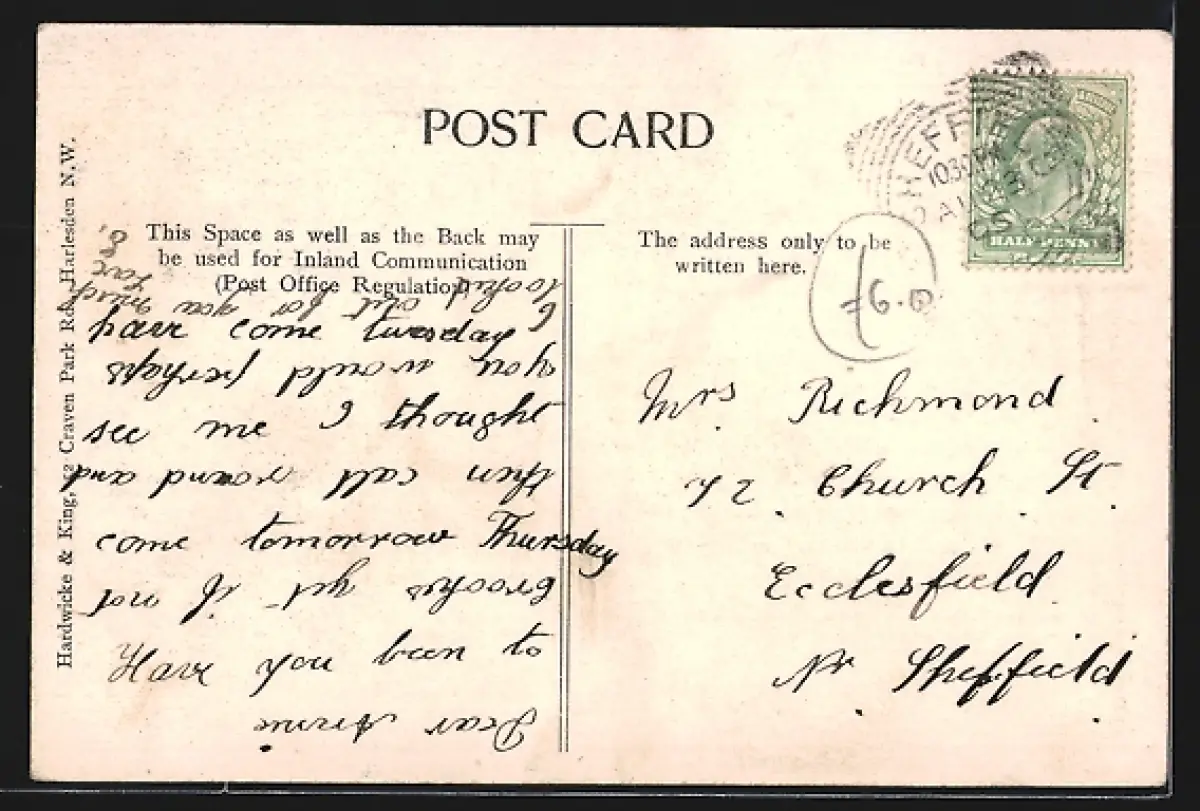 POST CARD
This Space as well as the Back may
be used for Inland Communication
(Post Office Regulation)
The address only to be
written here.
Hardwicke & King, Craven Park Harlesden N.W.
HALFPENNY
Dear Annie
Have you been to
Brookes yet if not
come tomorrow Thursday
then call round and
see me I thought
you would perhaps
have come tuesday I
looked out for you
much
Love
Mrs Richmond
72 Church St
Ecclesfield
Nr Sheffield